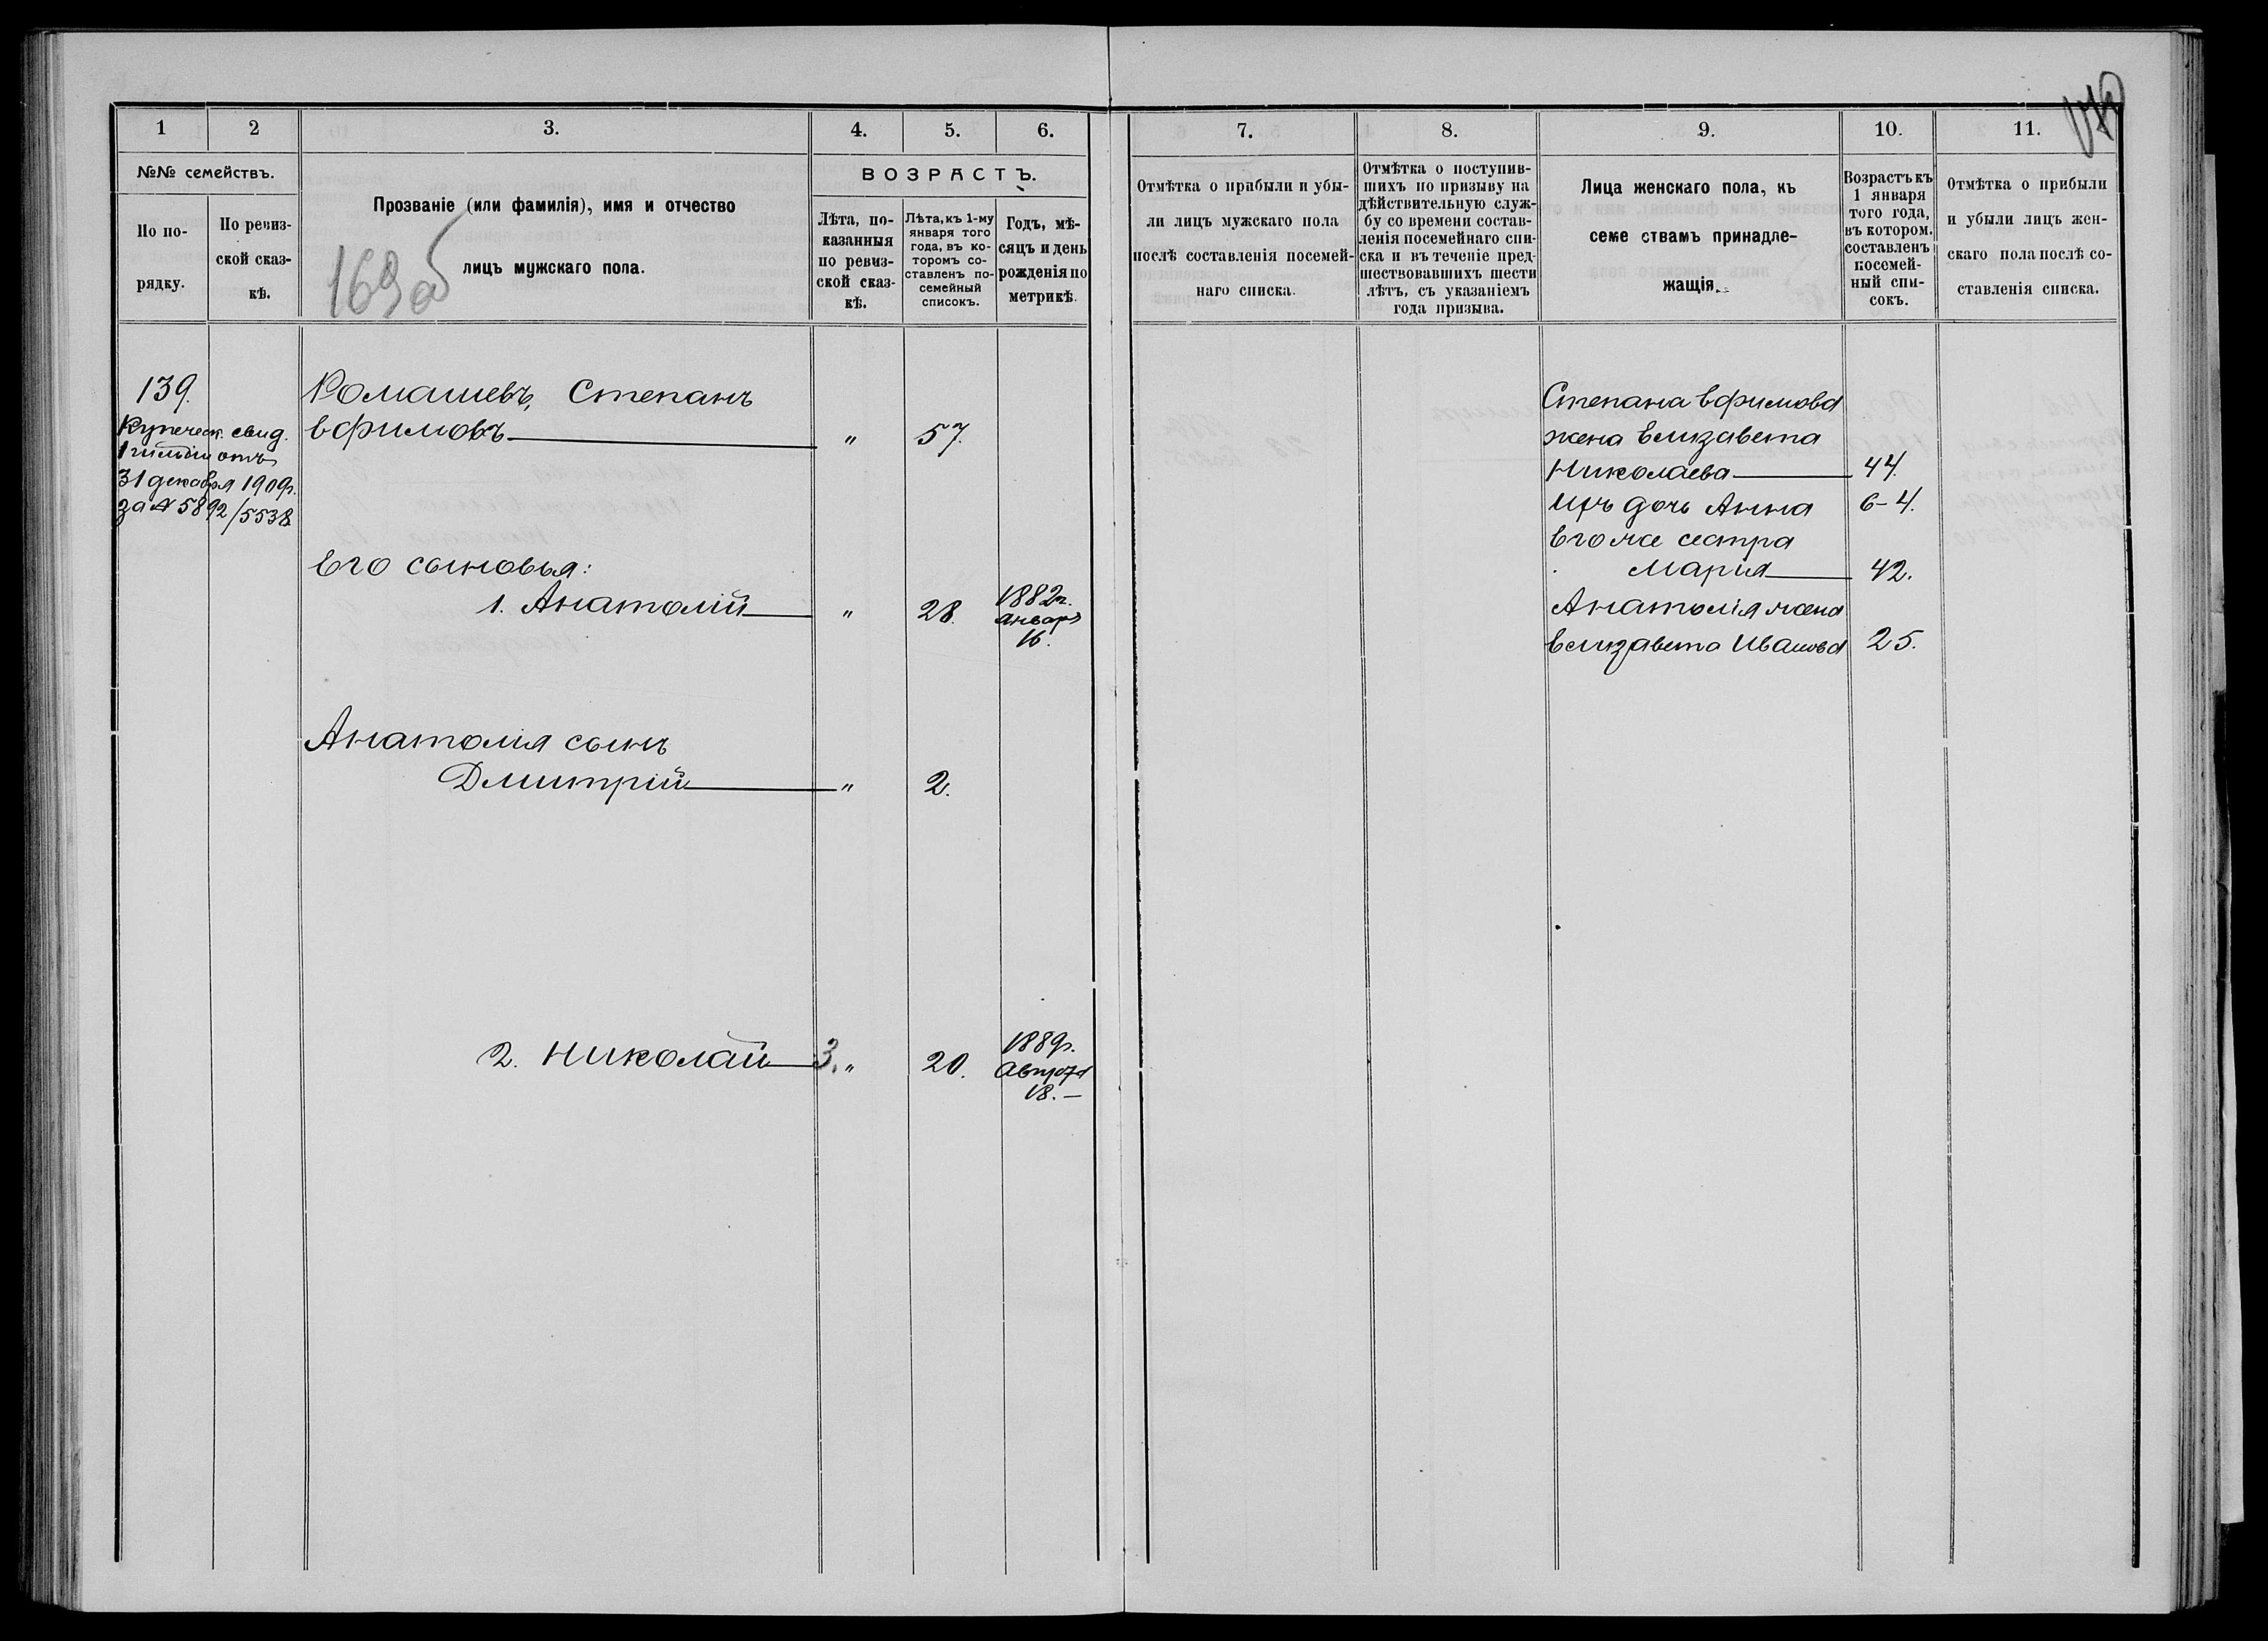 1
2
3.
4.
5.
6.
№№ семействъ.
По по-
рядку.
По ревиз-
ской сказ-
кѣ.
Прозваніе (или фамилія), имя и отчество
лицъ мужскаго пола.
ВОЗРАСТЪ.
Лѣта, по-
казанныя
по ревиз-
ской сказ-
кѣ.
Лѣта, къ 1-му
января того
года, въ ко-
торомъ со-
ставленъ по-
семейный
списокъ.
Годъ, мѣ-
сяцъ и день
рожденія по
метрикѣ.
139.
Купеческ. свид.
1 гильдіи отъ
31 декабря 1909г.
за № 5892/5538
Ромашевъ, Степанъ
Ефимовъ " 57.
Его сыновья:
1. Анатолій " 28. 1882г.
январь
16.
Анатолія сынъ
Дмитрій " 2.
2. Николай 3. " 20. 1889г.
Августа
18.
7.
8.
9.
10.
11.
Отмѣтка о прибыли и убы-
ли лицъ мужскаго пола
послѣ составленія посемей-
наго списка.
Отмѣтка о поступив-
шихъ по призыву на
дѣйствительную служ-
бу со времени состав-
ленія посемейнаго спи-
ска и въ теченіе пред-
шествовавшихъ шести
лѣтъ, съ указаніемъ
года призыва.
Лица женскаго пола, къ
семе ствамъ принадле-
жащія.
Возрастъ къ
1 января
того года,
въ котором.
составленъ
посемей-
ный спи-
сокъ.
Отмѣтка о прибыли
и убыли лицъ жен-
скаго пола послѣ со-
ставленія списка.
Степана Ефимова
жена Елизавета
Николаева 44.
Ихъ дочь Анна 6-4.
Его же сестра
Марія 42.
Анатолія жена
Елизавета Иванова 25.